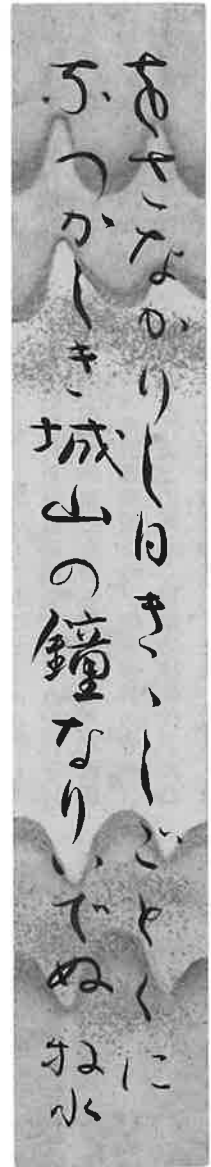 をさなかりし日きゝしごとくに
なつかしき城山の鐘なりいでぬ 牧水